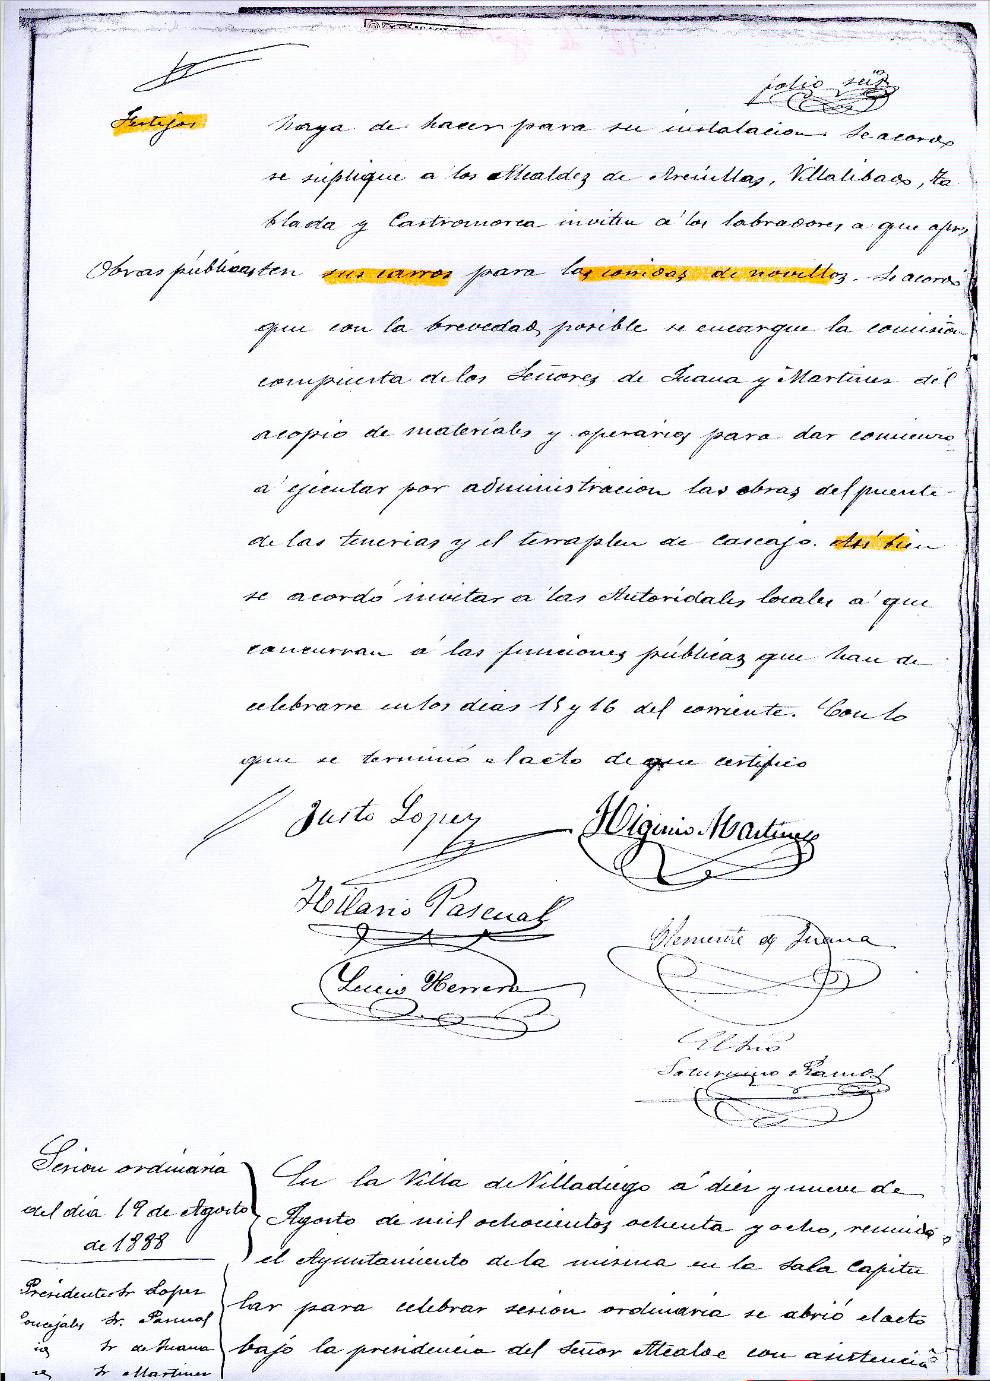 folio seis
Festejos
haya de hacer para su instalacion. Se acordó
se suplique a los Alcaldes de Arenillas, Villalibado, Ta
blada y Castromorca inviten a los labradores a que apres
Obras públicas
ten sus carros para las corridas de novillos. Se acordó
que con la brevedad posible se encargue la comisión
compuesta de los Señores de Juana y Martinez del
acopio de materiales y operarios para dar comienzo
á ejecutar por administracion las obras del puente
de las tenerias y el terraplen de cascajo. Asi bien
se acordó invitar a las Autoridades locales á que
concurran á las funciones públicas que han de
celebrarse en los dias 15 y 16 del corriente. Con lo
que se terminó el acto de que certifico
Justo Lopez
Higinio Martinez
Hilario Pascual
Clemente de Juana
Lucio Herrero
El Srio
Saturnino Ramos
Sesion ordinaria
del día 19 de Agosto
de 1888
Presidente Sr Lopez
Concejales Sr. Pascual
id Sr de Juana
id Sr Martinez
En la Villa de Villadiego á diez y nueve de
Agosto de mil ochocientos ochenta y ocho, reunido
el Ayuntamiento de la misma en la sala Capitu
lar para celebrar sesion ordinaria se abrió el acto
bajo la presidencia del Señor Alcalde con asistencia